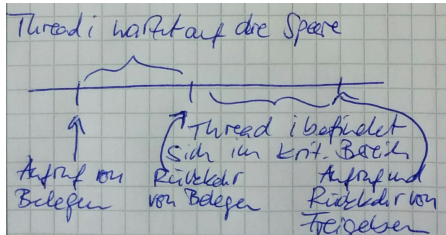 Thread i wartet auf die Sperre
Thread i befindet
sich im krit. Bereich
Aufruf von
Belegen
Rückkehr
von Belegen
Aufruf und
Rückkehr von
Freigeben